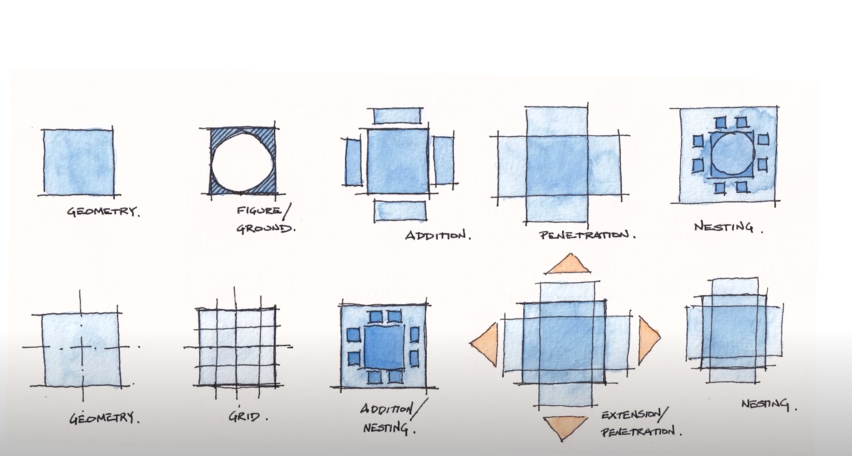 GEOMETRY.
FIGURE/
GROUND.
ADDITION.
PENETRATION.
NESTING.
GEOMETRY.
GRID.
ADDITION/
NESTING.
EXTENSION/
PENETRATION.
NESTING.